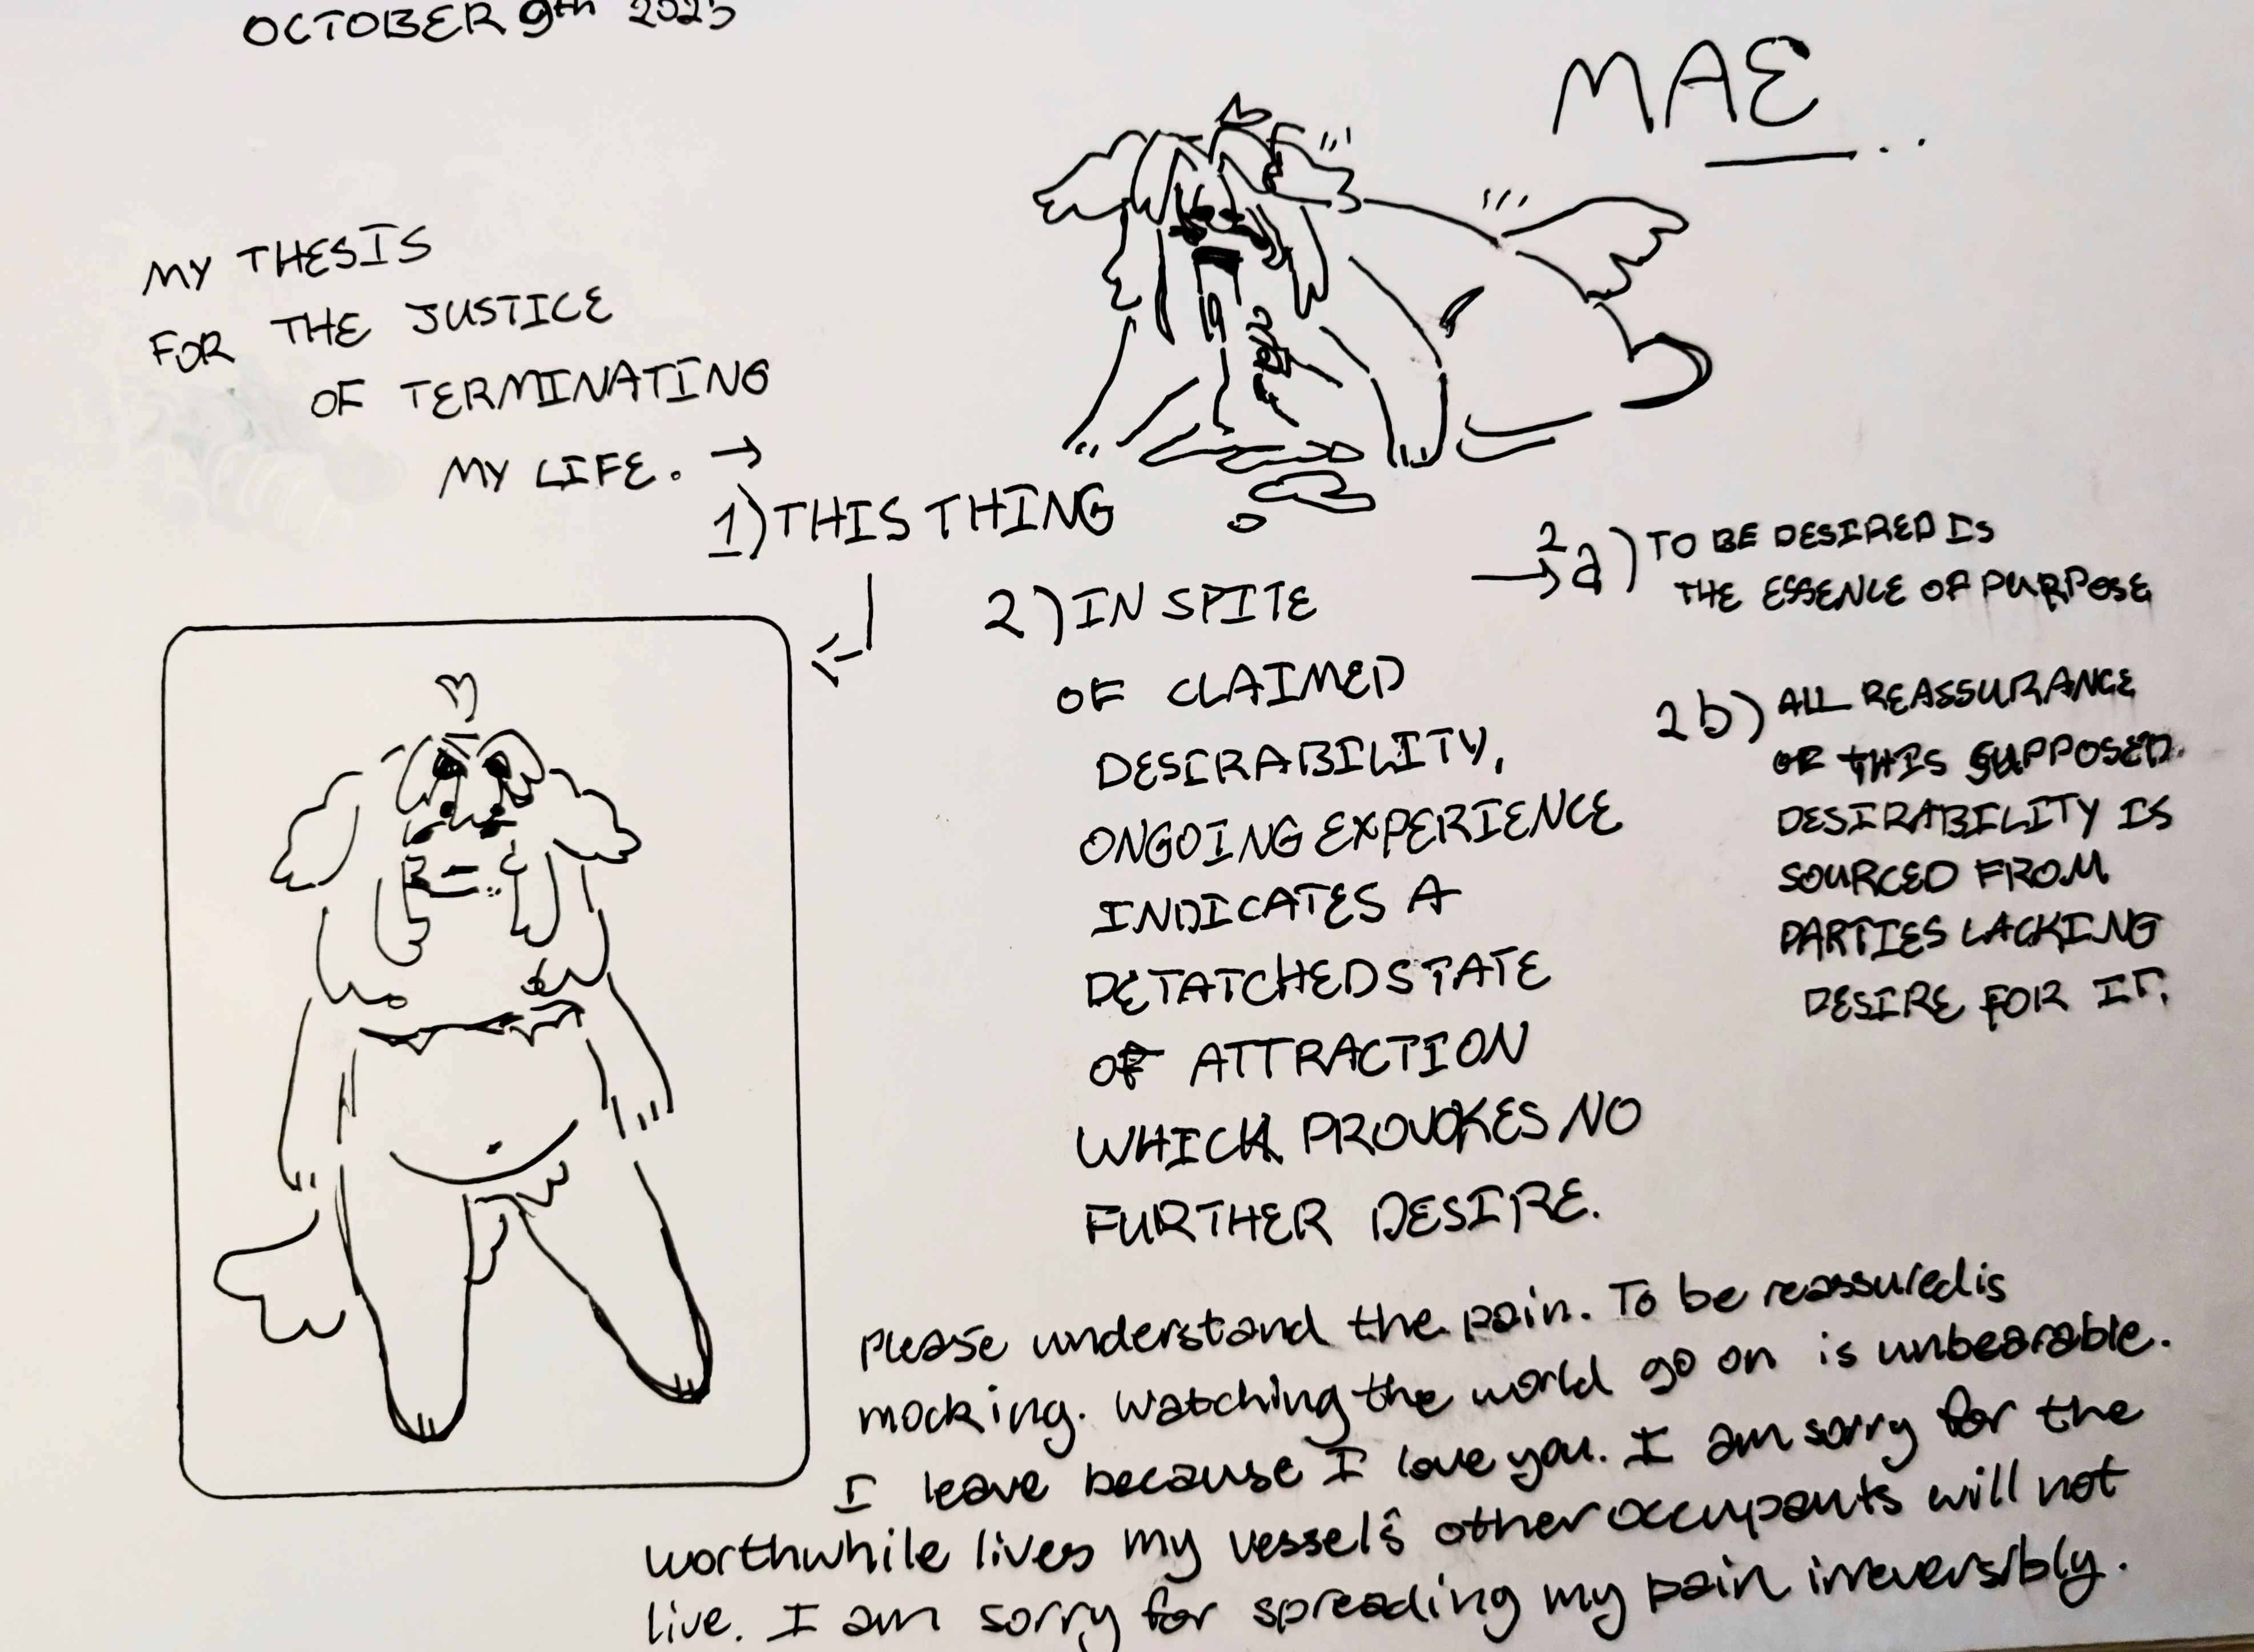 OCTOBER 9th 2025
MAE
MY THESIS
FOR THE JUSTICE
OF TERMINATING
MY LIFE. →
1) THIS THING
2) IN SPITE
OF CLAIMED
DESIRABILITY,
ONGOING EXPERIENCE
INDICATES A
DETATCHED STATE
OF ATTRACTION
WHICH PROVOKES NO
FURTHER DESIRE.
→ 2a) TO BE DESIRED IS
THE ESSENCE OF PURPOSE
2b) ALL REASSURANCE
OF THIS SUPPOSED
DESIRABILITY IS
SOURCED FROM
PARTIES LACKING
DESIRE FOR IT.
Please understand the pain. To be reassured is
mocking. Watching the world go on is unbearable.
I leave because I love you. I am sorry for the
worthwhile lives my vessel's other occupants will not
live. I am sorry for spreading my pain irreversibly.